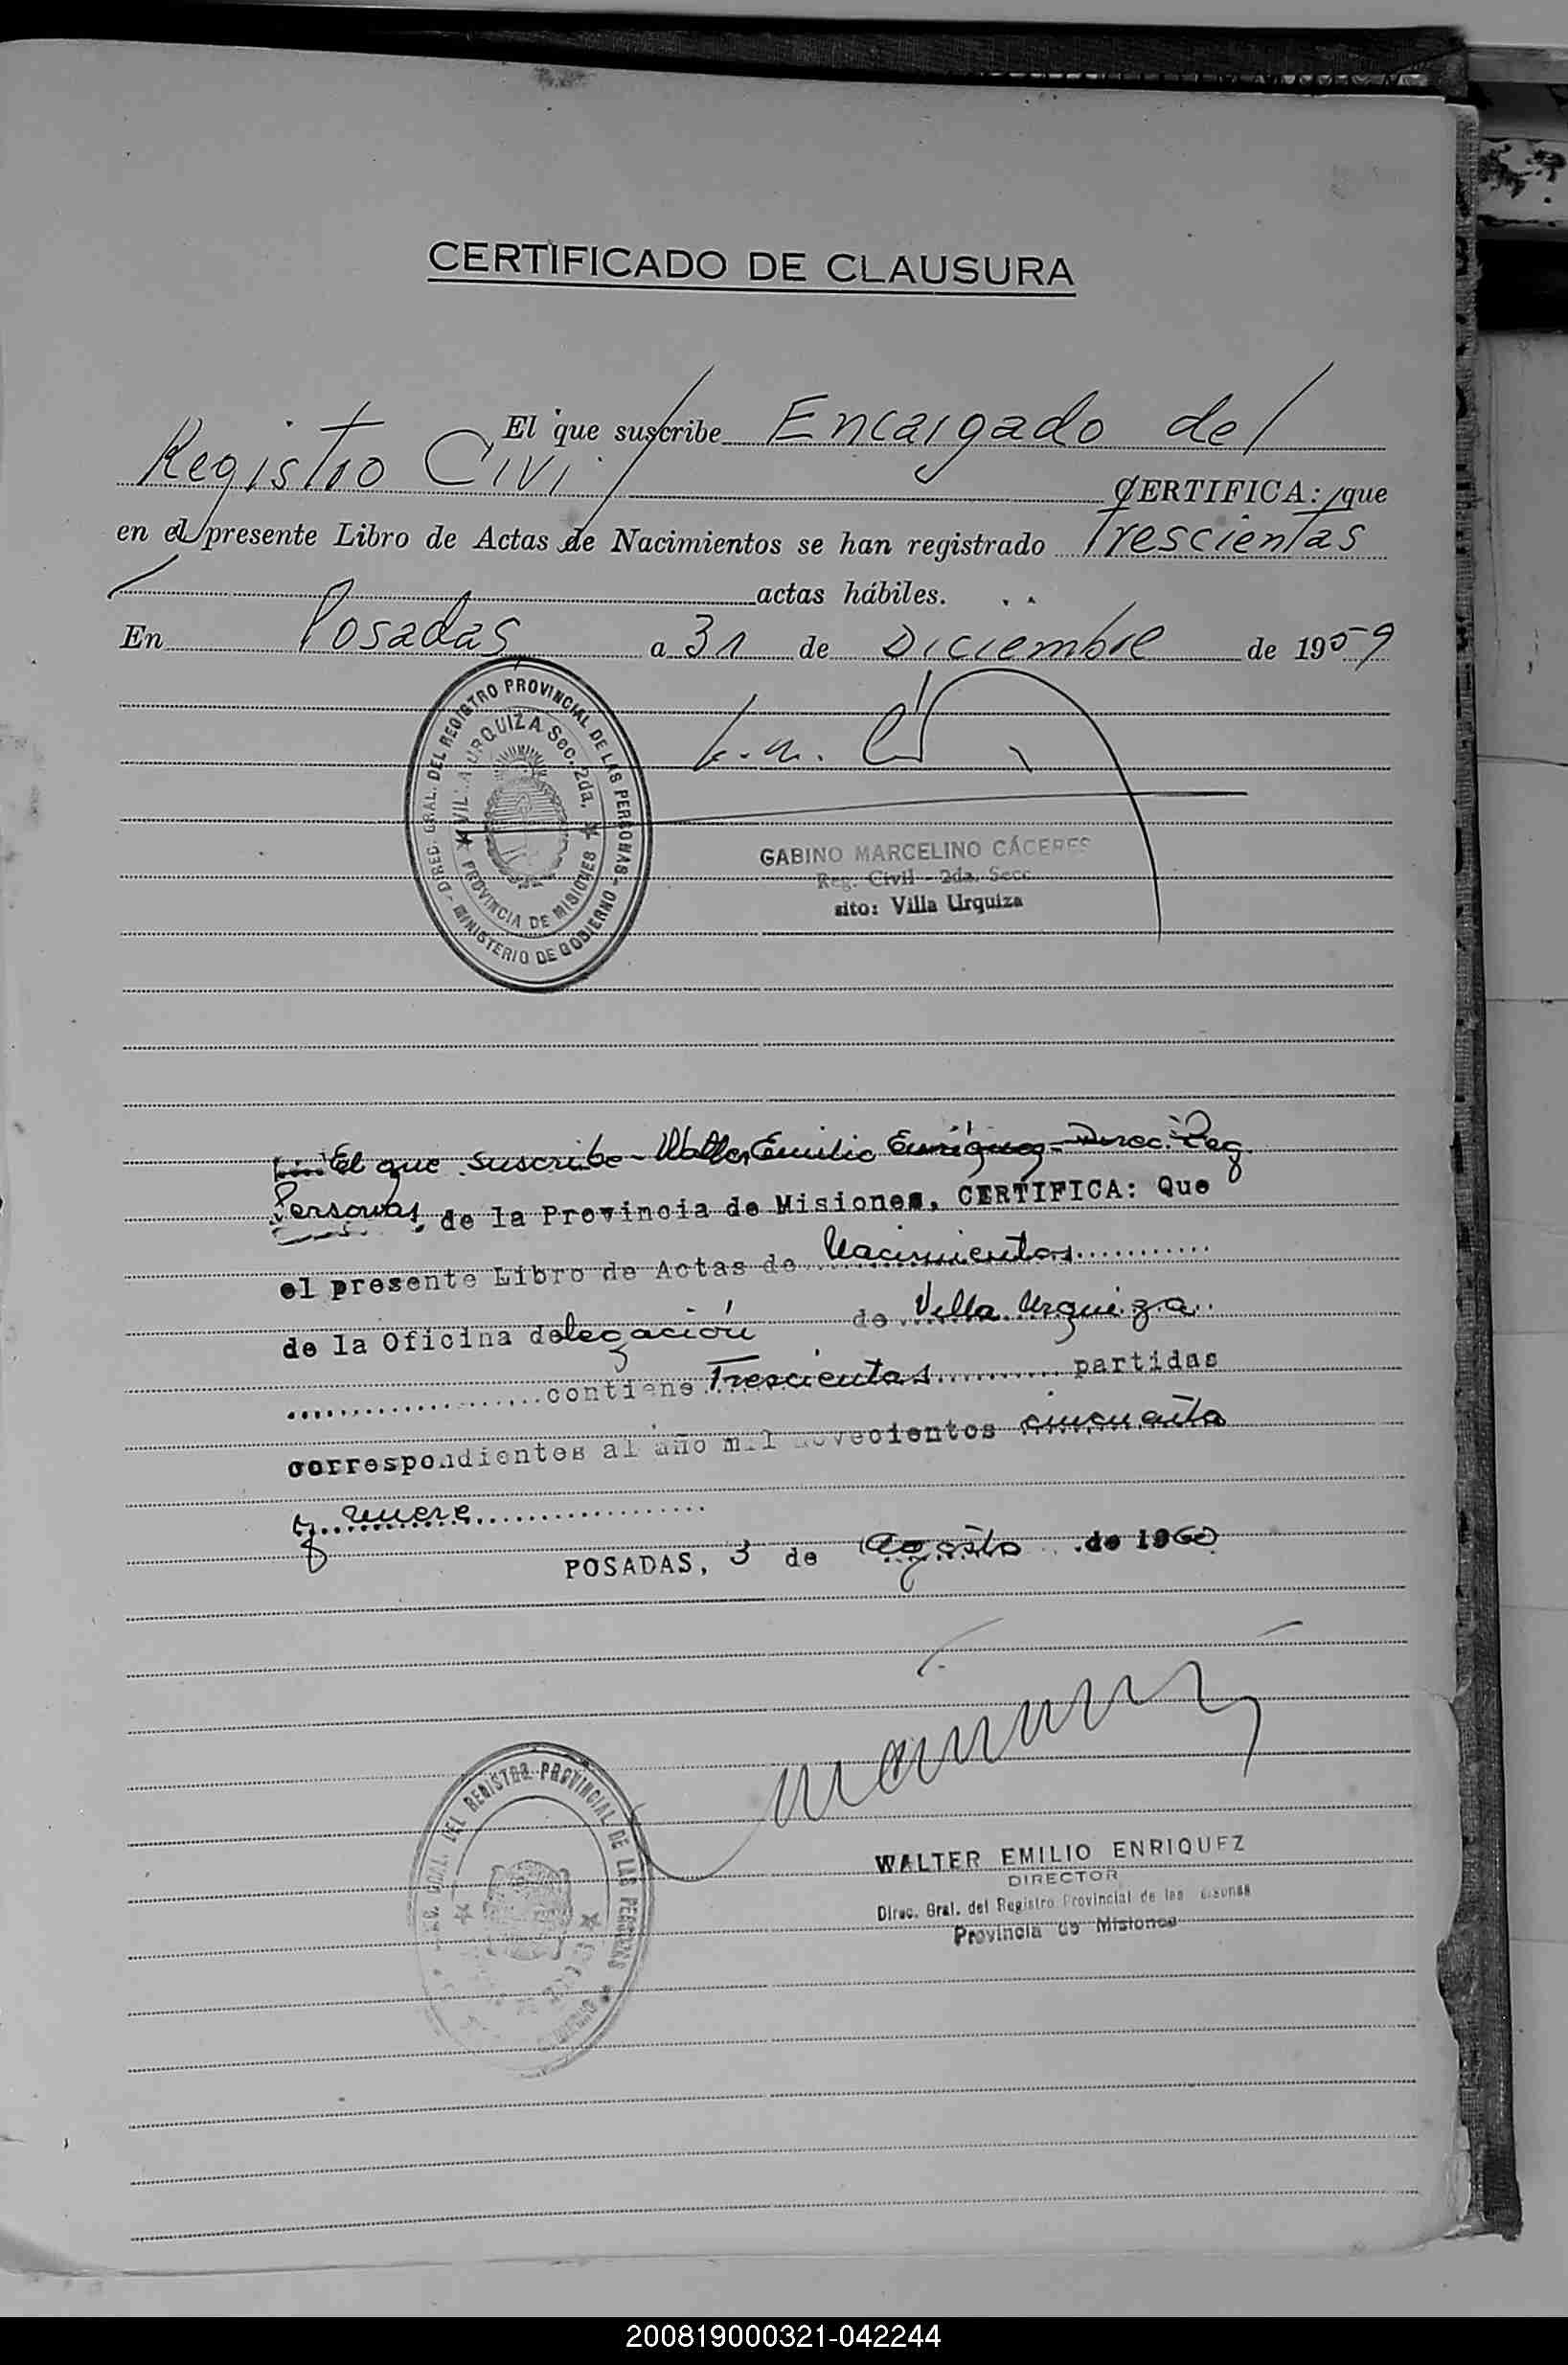 CERTIFICADO DE CLAUSURA
El que suscribe Encargado del
Registro Civil CERTIFICA: que
en el presente Libro de Actas de Nacimientos se han registrado Trescientas
actas hábiles.
En Posadas a 31 de Diciembre de 1959
DIREC. GRAL. DEL REGISTRO PROVINCIAL DE LAS PERSONAS - MINISTERIO DE GOBIERNO -
VILLA URQUIZA Sec. 2da.
PROVINCIA DE MISIONES
GABINO MARCELINO CÁCERES
Reg. Civil - 2da. Secc
sito: Villa Urquiza
El que suscribe - Walter Emilio Enriquez - Direc. Reg.
Personas, de la Provincia de Misiones, CERTIFICA: Que
el presente Libro de Actas de Nacimientos
de la Oficina delegación de Villa Urquiza
contiene Trescientas partidas
correspondientes al año mil novecientos cincuenta
y nueve
POSADAS, 3 de Agosto de 1960
GRAL. DEL REGISTRO PROVINCIAL DE LAS PERSONAS
WALTER EMILIO ENRIQUEZ
DIRECTOR
Direc. Gral. del Registro Provincial de las Personas
Provincia de Misiones
200819000321-042244